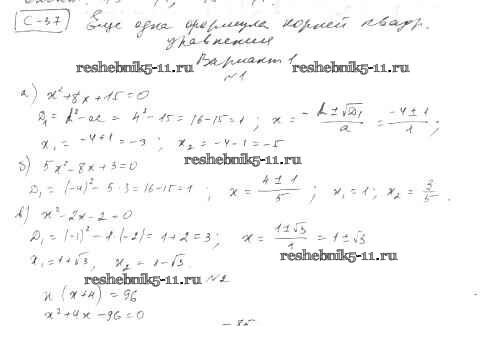 С-37 Еще одна формула корней квадр.
уравнения
Вариант 1
reshebnik5-11.ru
№1
а) x²+8x+15=0
D₁=k²-ac = 4²-15=16-15=1 ; x = (-k±√D₁)/a = (-4±1)/1 ;
x₁ = -4+1=-3 ; x₂ = -4-1=-5
reshebnik5-11.ru
б) 5x²-8x+3=0
D₁=(-4)²-5·3=16-15=1 ; x = (4±1)/5 ; x₁=1; x₂=3/5.
в) x²-2x-2=0
D₁=(-1)²-1·(-2)=1+2=3 ; x = (1±√3)/1 = 1±√3
x₁=1+√3, x₂=1-√3.
reshebnik5-11.ru
reshebnik5-11.ru №2
x(x+4)=96
x²+4x-96=0
- 85